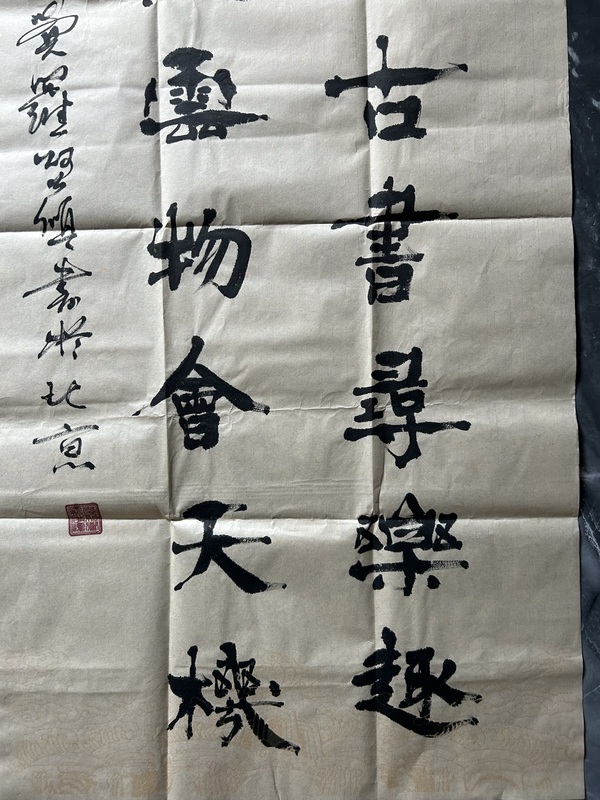 古書尋樂趣
雲物會天機
覺羅 書於北京